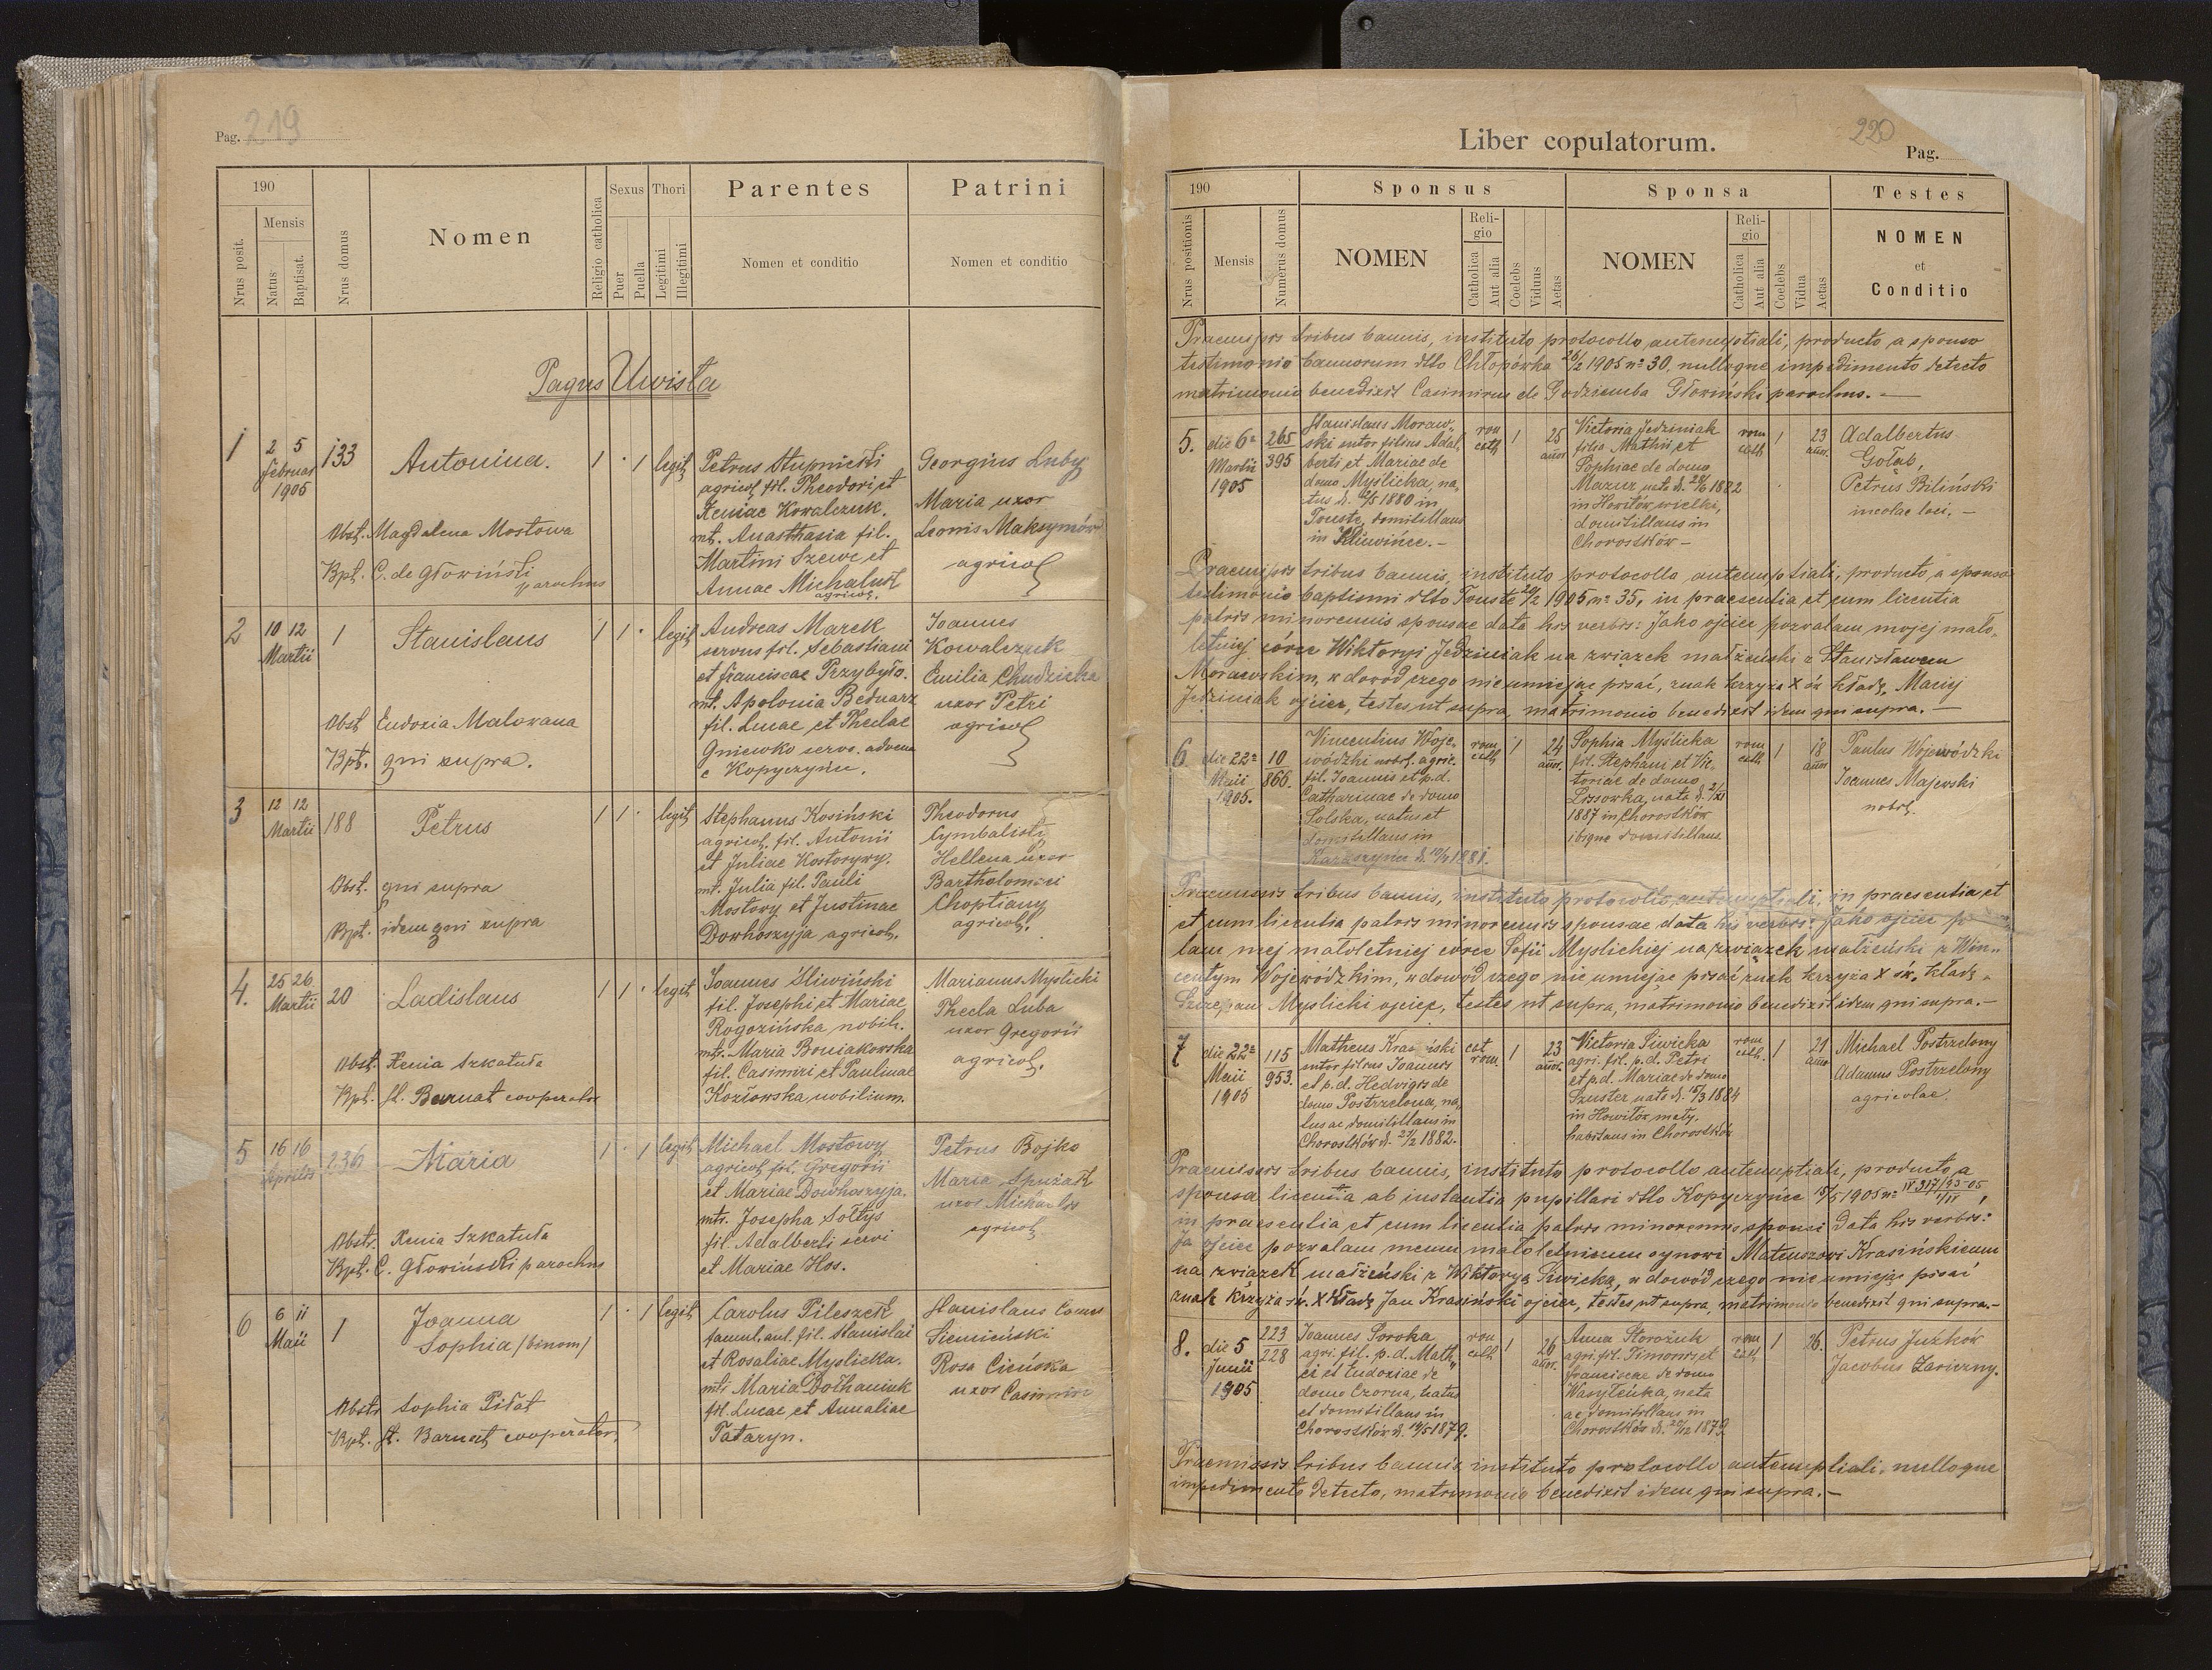 Pag. 219
190
Nrus posit.
Mensis
Natus
Baptisat.
Nrus domus
Nomen
Religio catholica
Sexus
Puer
Puella
Thori
Legitimi
Illegitimi
Parentes
Nomen et conditio
Patrini
Nomen et conditio
Pagus Uwisła
1
2 5
Februar
1905
133
Antonina.
1 · 1 legit.
Petrus Stupnicki
agricol. fil. Theodori et
Xeniae Kowalczuk.
mt. Anasthasia fil.
Martini Szewc et
Annae Michaluk
agricol.
Georgius Luby
Maria uxor
Leonis Maksymów
agricol.
Obst. Magdalena Mostowa
Bpt. C. de Głowiński
parochus
2
10 12
Martii
1
Stanislaus
1 1 · legit.
Andreas Marek
servus fil. Sebastiani
et Franciscae Przybyło.
mt. Apolonia Bednarz
fil. Lucae et Theclae
Gniewko servo. advena
e Kopyczyńce.
Joannes
Kowalczuk
Emilia Chudzicka
uxor Petri
agricol.
Obst. Eudoxia Malowana
Bpt. qui supra.
3
12 12
Martii
188
Petrus
1 1 · legit.
Stephanus Kosiński
agricol. fil. Antonii
et Juliae Kostorywy.
mt. Julia fil. Pauli
Mostowy et Justinae
Dowhoszyja agricol.
Theodorus
Cymbalisty
Hellena uxor
Bartholomiei
Choptiany
agricol.
Obst. qui supra
Bpt. idem qui supra
4.
25 26
Martii
20
Ladislaus
1 1 · legit.
Joannes Śliwiński
fil. Josephi et Mariae
Rogozińska nobil.
mtr. Maria Boniakowska
fil. Casimiri et Paulinae
Kozłowska nobilium.
Marianus Myslicki
Thecla Luba
uxor Gregorii
agricol.
Obst. Xenia Szkatuła
Bpt. St. Barnat cooperator
5
16 16
Aprilis
236
Maria
1 · 1 legit.
Michael Mostowy
agricol. fil. Gregorii
et Mariae Dowhoszyja.
mtr. Josepha Sołtys
fil. Adalberti servi
et Mariae Hos.
Petrus Bojko
Maria Spużak
uxor Michaelis
agricol.
Obstr. Xenia Szkatuła
Bpt. C. Głowiński parochus
6
6 11
Maii
1
Joanna
Sophia /binom/
1 · 1 legit.
Carolus Pileszek
famul. aul. fil. Stanislai
et Rosaliae Myslicka.
mtr. Maria Dołhaniuk
fil. Lucae et Annaliae
Tataryn.
Stanislaus Comes
Siemieński
Rosa Cieńska
uxor Casimiri
Obstr. Sophia Piłat
Bpt. St. Barnat cooperator
Liber copulatorum.
220
Pag.
190
Nrus positionis
Mensis
Numerus domus
Sponsus
NOMEN
Religio
Catholica
Aut alia
Coelebs
Viduus
Aetas
Sponsa
NOMEN
Religio
Catholica
Aut alia
Coelebs
Vidua
Aetas
Testes
NOMEN
et
Conditio
Praemissis tribus bannis, instituto protocollo antenuptiali, producto a sponso
testimonio bannorum dtto Chłopówka 26/2 1905 nº 30, nulloque impedimento detecto
matrimonio benedixit Casimirus de Godziemba Głowiński parochus. —
5.
die 6ª
Martii
1905
265
395
Stanislaus Moraw-
ski sutor filius Adal-
berti et Mariae de
domo Myślicka, na-
tus d. 12/5 1880 in
Touste, domicillans
in Kluwińce. —
rom
cath
1
25
annor.
Victoria Jedziniak
filia Mathii et
Sophiae de domo
Mazur, nata d. 28/6 1882
in Howiłów wielki,
domicillans in
Chorostków —
rom
cath
1
23
annor.
Adalbertus
Gołąb,
Petrus Biliński
incolae loci. —
Praemissis tribus bannis, instituto protocollo antenuptiali, producto a sponso
testimonio baptismi dtto Touste 20/2 1905 nº 35, in praesentia et cum licentia
patris minorennis sponsae data his verbis: Jako ojciec pozwalam mojej mało-
letniej córce Wiktoryi Jedziniak na związek małżeński z Stanisławem
Morawskim, w dowód czego nie umiejąc pisać, znak krzyża X św. kładę. Maciej
Jedziniak ojciec, testes ut supra, matrimonio benedixit idem qui supra. —
6
die 22ª
Maii
1905.
10
866.
Vincentius Woje-
wódzki nobil. agric.
fil. Joannis et p.d.
Catharinae de domo
Solska, natus et
domicillans in
1881.
rom
cath
1
24
annor.
Sophia Myślicka
fil. Stephani et Vic-
toriae de domo
Lissowka, nata d. 2/XI
1887 in Chorostków
ibique domicillans.
rom
cath
1
18
annor.
Paulus Wojewódzki
Joannes Majewski
nobil.
Praemissis tribus bannis, instituto protocollo antenuptiali, in praesentia et
et cum licentia patris minorennis sponsae data his verbis: Jako ojciec po
lam mej małoletniej córce Zofii Myslickiej na związek małżeński z Win-
centym Wojewódzkim, w dowód czego nie umiejąc pisać znak krzyża X św. kładę.
Szczepan Myslicki ojciec, testes ut supra, matrimonio benedixit idem qui supra. —
7
die 22ª
Maii
1905
115
953.
Matheus Krasiński
sutor filius Joannis
et p.d. Hedvigis de
domo Postrzelona, na-
tus ac domicillans in
Chorostków d. 21/2 1882.
cat
rom.
1
23
annor.
Victoria Siwicka
agri. fil. p.d. Petri
et p.d. Mariae de domo
Szuster nata d. 15/3 1884
in Howiłów mały,
habitans in Chorostków
rom
cath.
1
21
annor.
Michael Postrzelony
Adamus Postrzelony
agricolae.
Praemissis tribus bannis, instituto protocollo antenuptiali, producto a
sponsa licentia ab instantia pupillari dtto Kopyczyńce 15/5 1905 nº
in praesentia et cum licentia patris minorennis sponsi data his verbis:
Ja ojciec pozwalam memu małoletniemu synowi Mateuszowi Krasińskiemu
na związek małżeński z Wiktoryą Siwicką, w dowód czego nie umiejąc pisać
znak krzyża św. X kładę Jan Krasiński ojciec, testes ut supra, matrimonio benedixit qui supra. —
8.
die 5
Junii
1905
223
228
Joannes Soroka
agri. fil. p.d. Math-
ei et Eudoxiae de
domo Czorna, natus
et domicillans in
Chorostków d. 19/5 1879.
rom
cath
1
26
annor.
Anna Storożuk
agri. fil. Timonis et
Franciscae de domo
Wasyleńka, nata
ac domicillans in
Chorostków d. 20/12 1879
rom
cath
1
26.
Petrus Juzków
Jacobus Zariczny.
Praemissis tribus bannis, instituto protocollo antenuptiali, nulloque
impedimento detecto, matrimonio benedixit idem qui supra. —